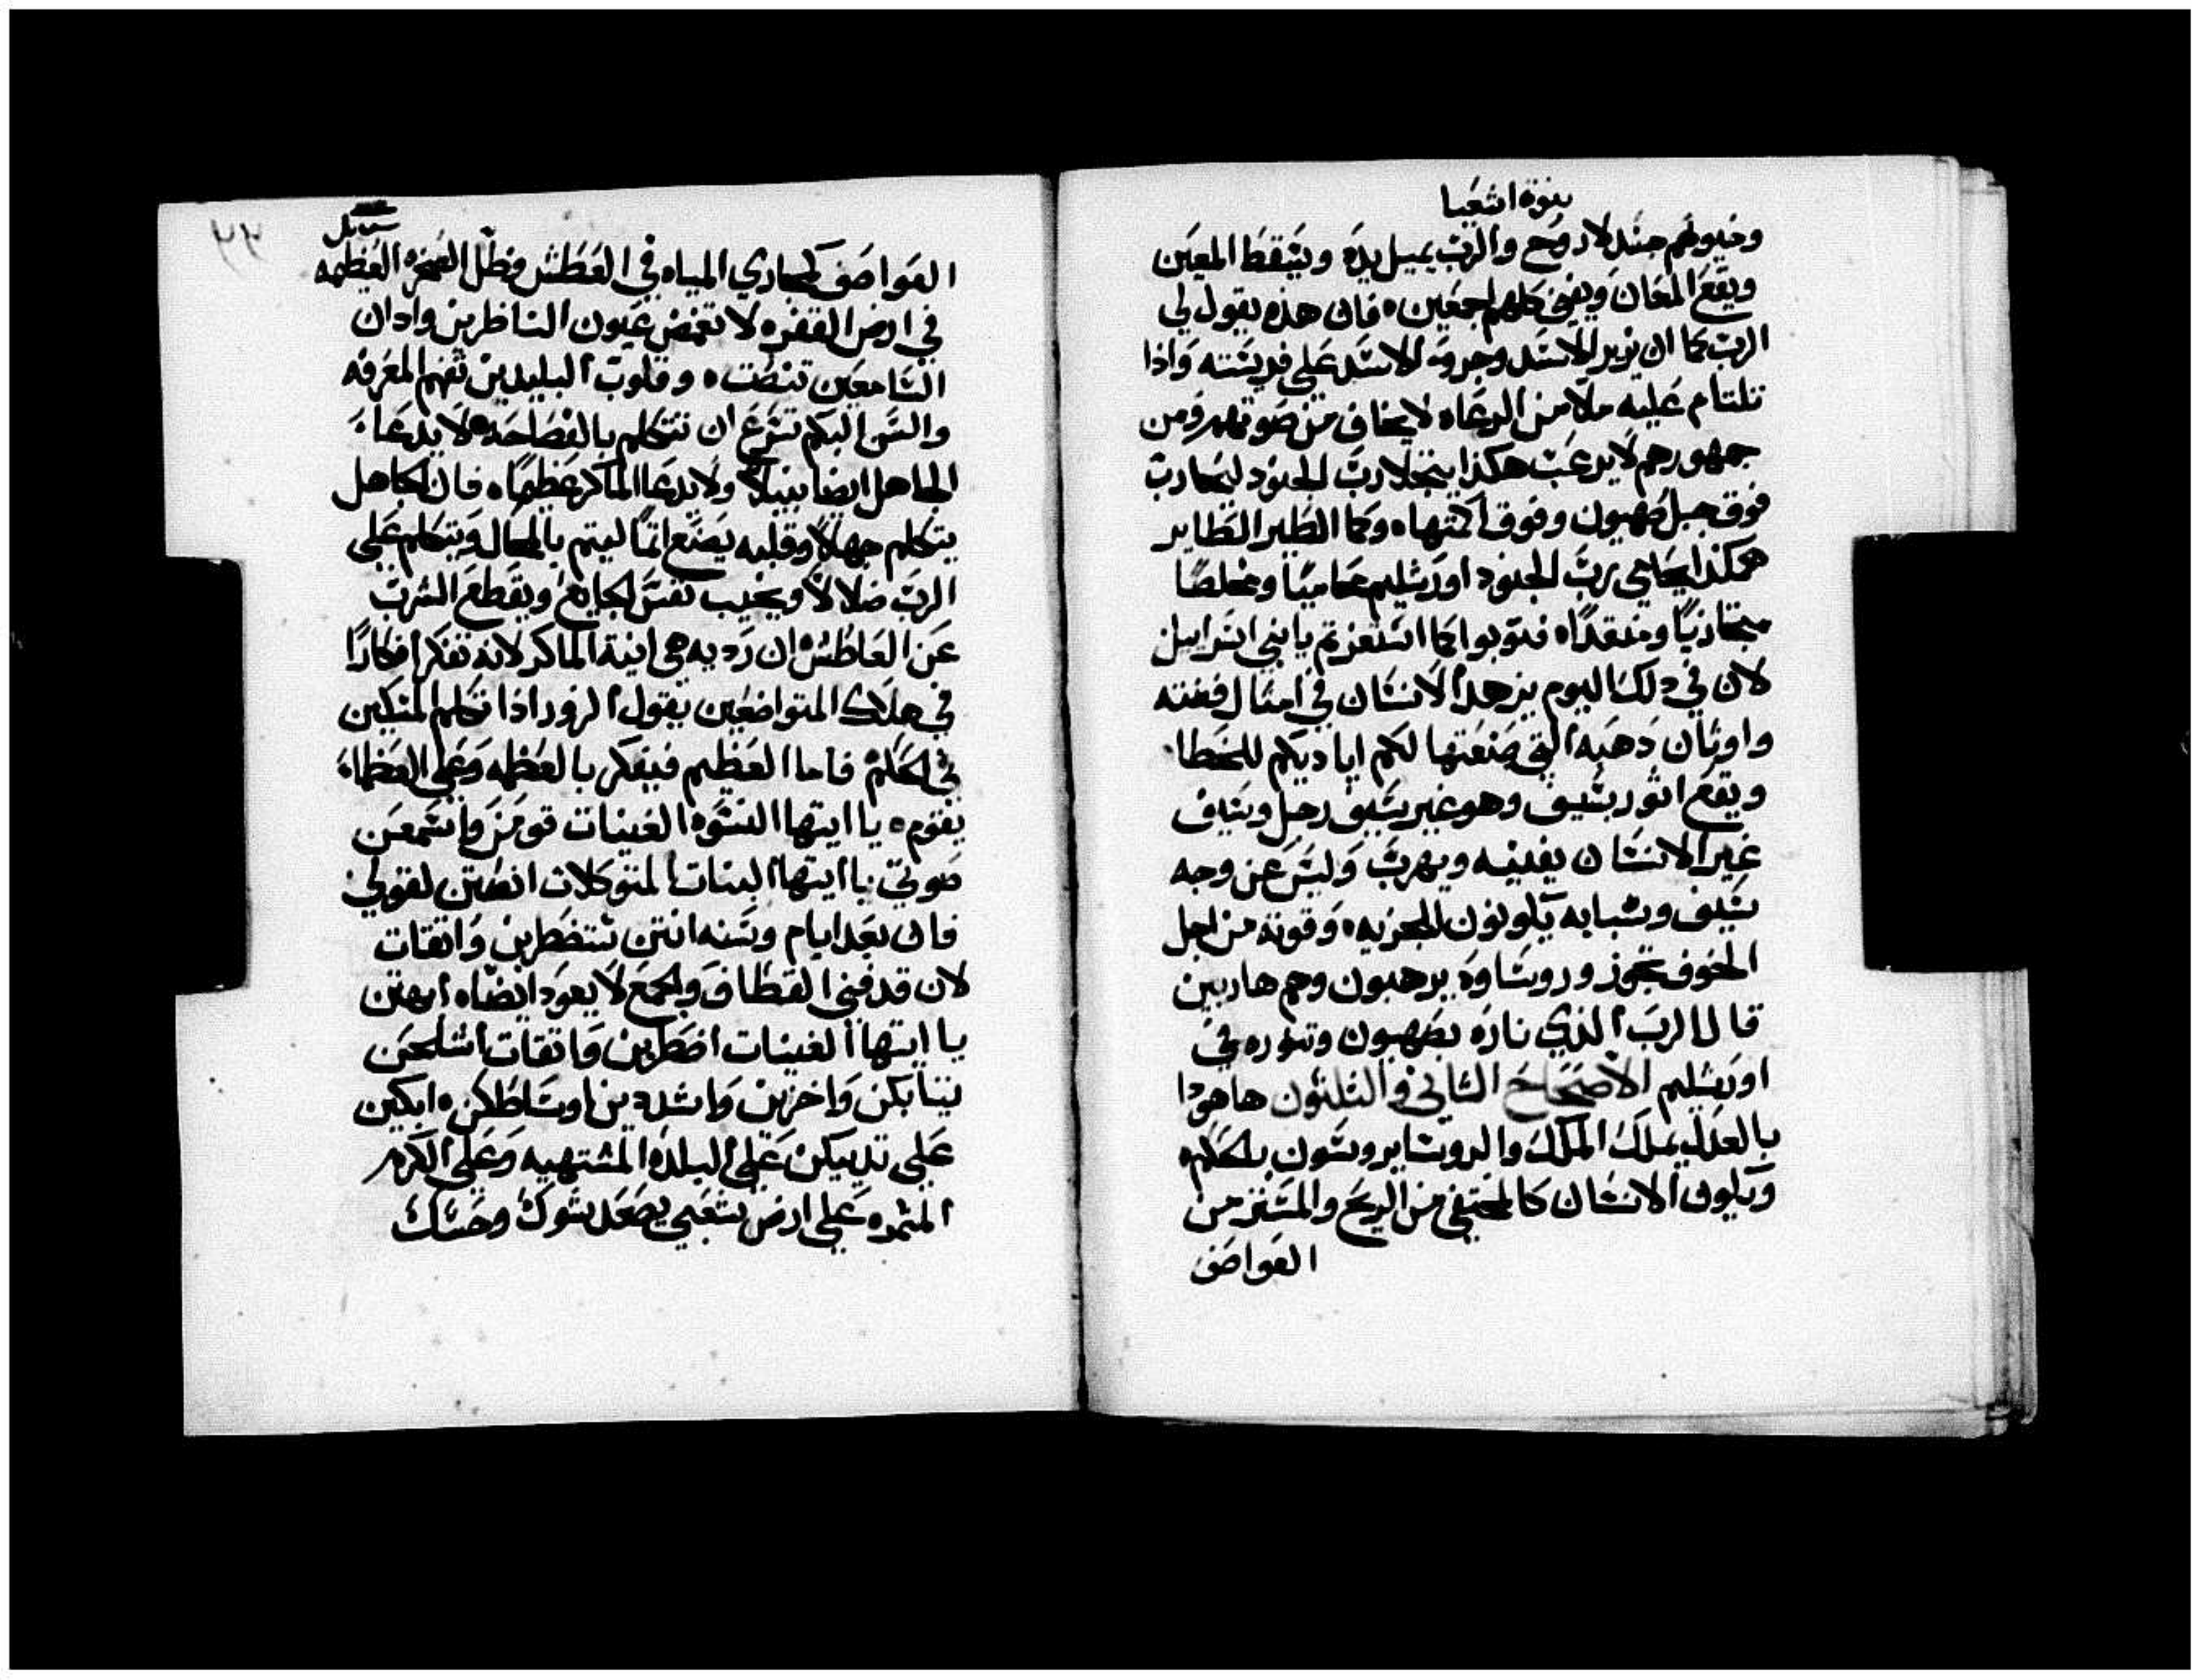 نبوة اشعيا
وخيولهم جسد لا روح والرب يميل يده ويسقط المعين
ويقع المعان ويفنى كلهم اجمعين ٥ فان هذه يقول لي
الرب كما ان يزير الاسد وجروة الاسد على فريسته واذا
تلتام عليه ملا من الرعاه لا يخاف من صوتهم ومن
جمهورهم لا يرعب هكذا ينحلا رب الجنود ليحارب
فوق جبل صهيون وفوق اكمتها ٥ وكما الطير الطاير
هكذا يحامي رب الجنود اورشليم محاميا ومخلصا
مجتازيا ومنقدا ٥ فتوبوا كما استعزتم يا بني اسراييل
لان في دلك اليوم يزهد الانسان في امثال فضته
واوثان دهبه التي صنعتها لكم اياديكم للخطا
ويقع اثور بسيف وهو غير سيف رجل وسيف
غير الانسان يفنيه ويهرب وليس عن وجه
سيف وشبابه يكونون للجزيه ٥ وقوته من اجل
الخوف تجوز وروساوه يرهبون وهم هاربين
قال الرب الذي ناره بصهيون وتنوره في
اورشليم الاصحاح الثاني والثلثون هاهودا
بالعدل يملك الملك والروسا يروسون بالحكم ٥
ويكون الانسان كالمختفي من الريح والمستتر من
العواصف
العواصف كمجاري المياه في العطش وظل الصخره العظيمه
في ارض القفره لا تغمض عيون الناظرين وادان
السامعين تنصت ٥ وقلوب البليدين تفهم المعرفه
والسن البكم تسرع ان تتكلم بالفصاحه ٥ لا يدعا
الجاهل ايضا نبيلا ولا يدعا الماكر عظيما ٥ فان الجاهل
يتكلم جهلا وقلبه يصنع اتما ليتم بالمحال ويتكلم على
الرب ضلالا ويخيب نفس الجايع ويقطع الشرب
عن العاطش ٥ ان رديه هي انية الماكر لانه تفكر افكارا
في هلاك المتواضعين بقول الزور اذا تكلم المسكين
في الحكم فاما العظيم فيفكر بالعظمه وعلى العظما
يقوم ٥ يا ايتها النسوه الغنيات قومن واسمعن
صوتي يا ايتها البنات المتوكلات انصتن لقولي
فان بعد ايام وسنه انتن ستضطربن واتقات
لان قد فني القطاف والجمع لا يعود ايضا ٥ ابهتن
يا ايتها الغنيات اضطربن واتقات اشلحن
تيابكن واخزين واشددين اوساطكن ٥ ابكين
على تدييكن على البلده المشتهيه وعلى الكرم
المثمره على ارض شعبي يصعد شوك وحسك